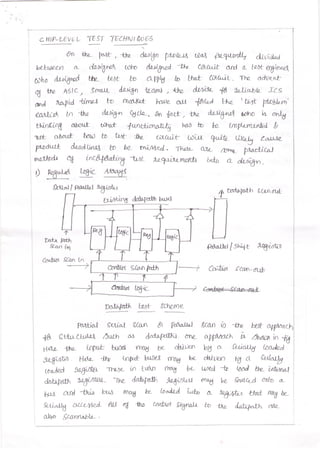 CHIP-LEVEL TEST TECHNIQUES
In the past, the design process was frequently divided
between a designer who designed the circuit and a test engineer
who designed the test to apply to that circuit. The advent
of the ASIC, small design teams, the desire for reliable ICs
and rapid times to market have all forced the "test problem"
earlier in the design cycle. In fact, the designer who is only
thinking about what functionality has to be implemented &
not about how to test the circuit will quite likely cause
product deadlines to be missed. There are some practical
methods of incorporating test requirements into a design.
1) Regular Logic Arrays
Serial / Parallel Registers
existing datapath buses
datapath scan out
Reg
Logic
Reg
Logic
Data path
scan in
Parallel / Shift Registers
Control Scan In
Control Scan path
Control scan out
Control logic
Control scan out
Datapath test scheme
Partial serial scan or parallel scan is the best approach
for structures such as datapaths. One approach is shown in fig
Here the input buses may be driven by a serially loaded
register. Here the input buses may be driven by a serially
loaded register. These in turn may be used to load the internal
datapath registers. The datapath registers may be sourced onto a
bus and this bus may be loaded into a register that may be
serially accessed. All of the control signals to the datapath are
also scannable.